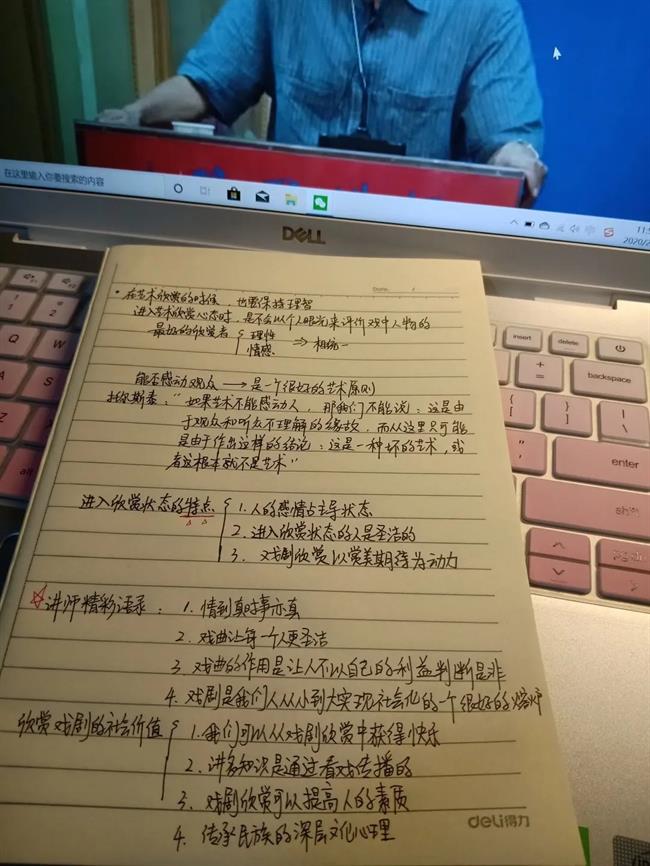 在这里输入你要搜索的内容
DELL
Date.
· 在艺术欣赏的时候，也要保持理智
进入艺术欣赏心态时，是不会以个人眼光来评价戏中人物的
最好的欣赏者 { 理性
情感 ⇒ 相统一
能否感动观众 → 是一个很好的艺术原则
托尔斯泰："如果艺术不能感动人，那我们不能说：这是由
于观众和听众不理解的缘故，而从这里只可能
是由于作出这样的结论：这是一种坏的艺术，或
者这根本就不是艺术"
进入欣赏状态的特点 { 1. 人的感情占主导状态
2. 进入欣赏状态的人是圣洁的
3. 戏剧欣赏以赏美期待为动力
☆讲师精彩语录：1. 情到真时事亦真
2. 戏曲让每一个人更圣洁
3. 戏曲的作用是让人不以自己的利益判断是非
4. 戏剧是我们人从小到大实现社会化的一个很好的熔炉
欣赏戏剧的社会价值 { 1. 我们可以从戏剧欣赏中获得快乐
2. 许多知识是通过看戏传播的
3. 戏剧欣赏可以提高人的素质
4. 传承民族的深层文化心理
deli得力
insert
delete
backspace
enter
shift
alt
Q
W
A
S
Z
1
2
2020/2